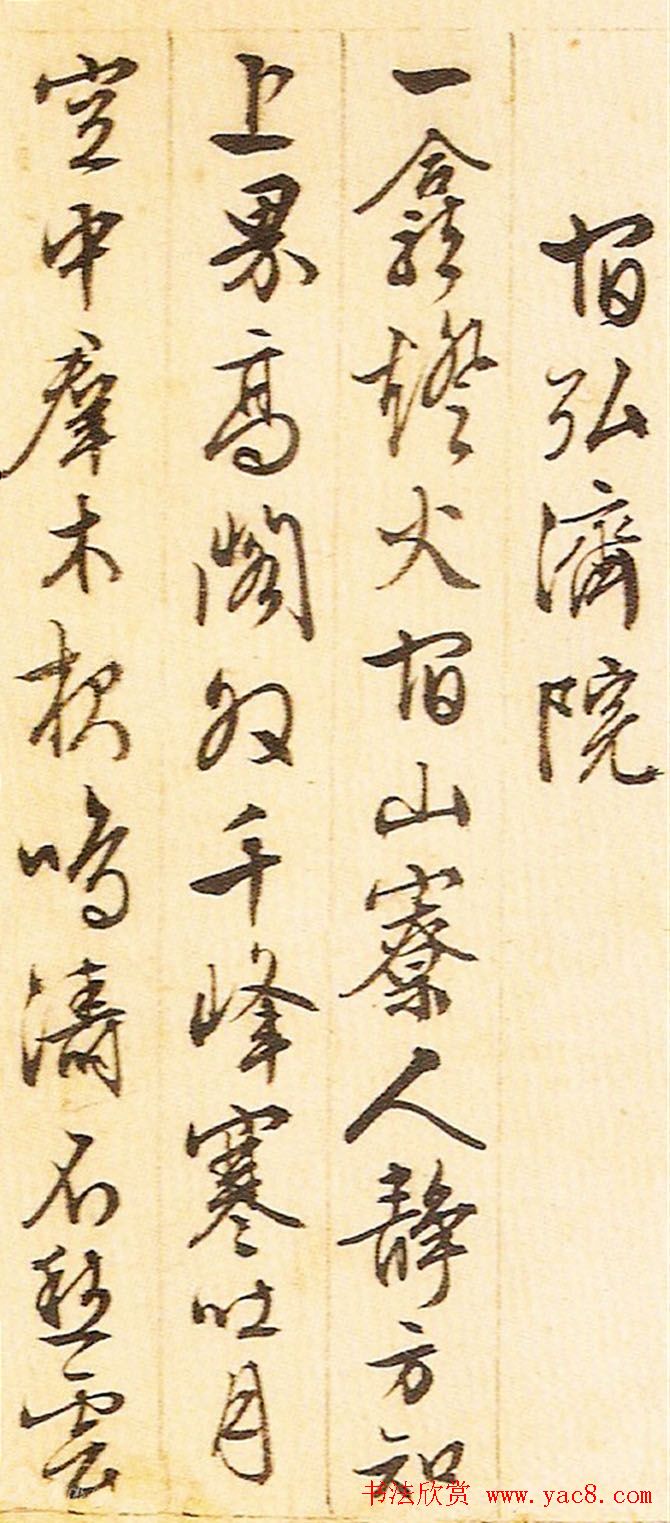 宿弘濟院
一龕燈火宿山寮人靜方知
上界高閣外千峰寒吐月
空中羣木鳴濤石愁雲
书法欣赏 www.yac8.com